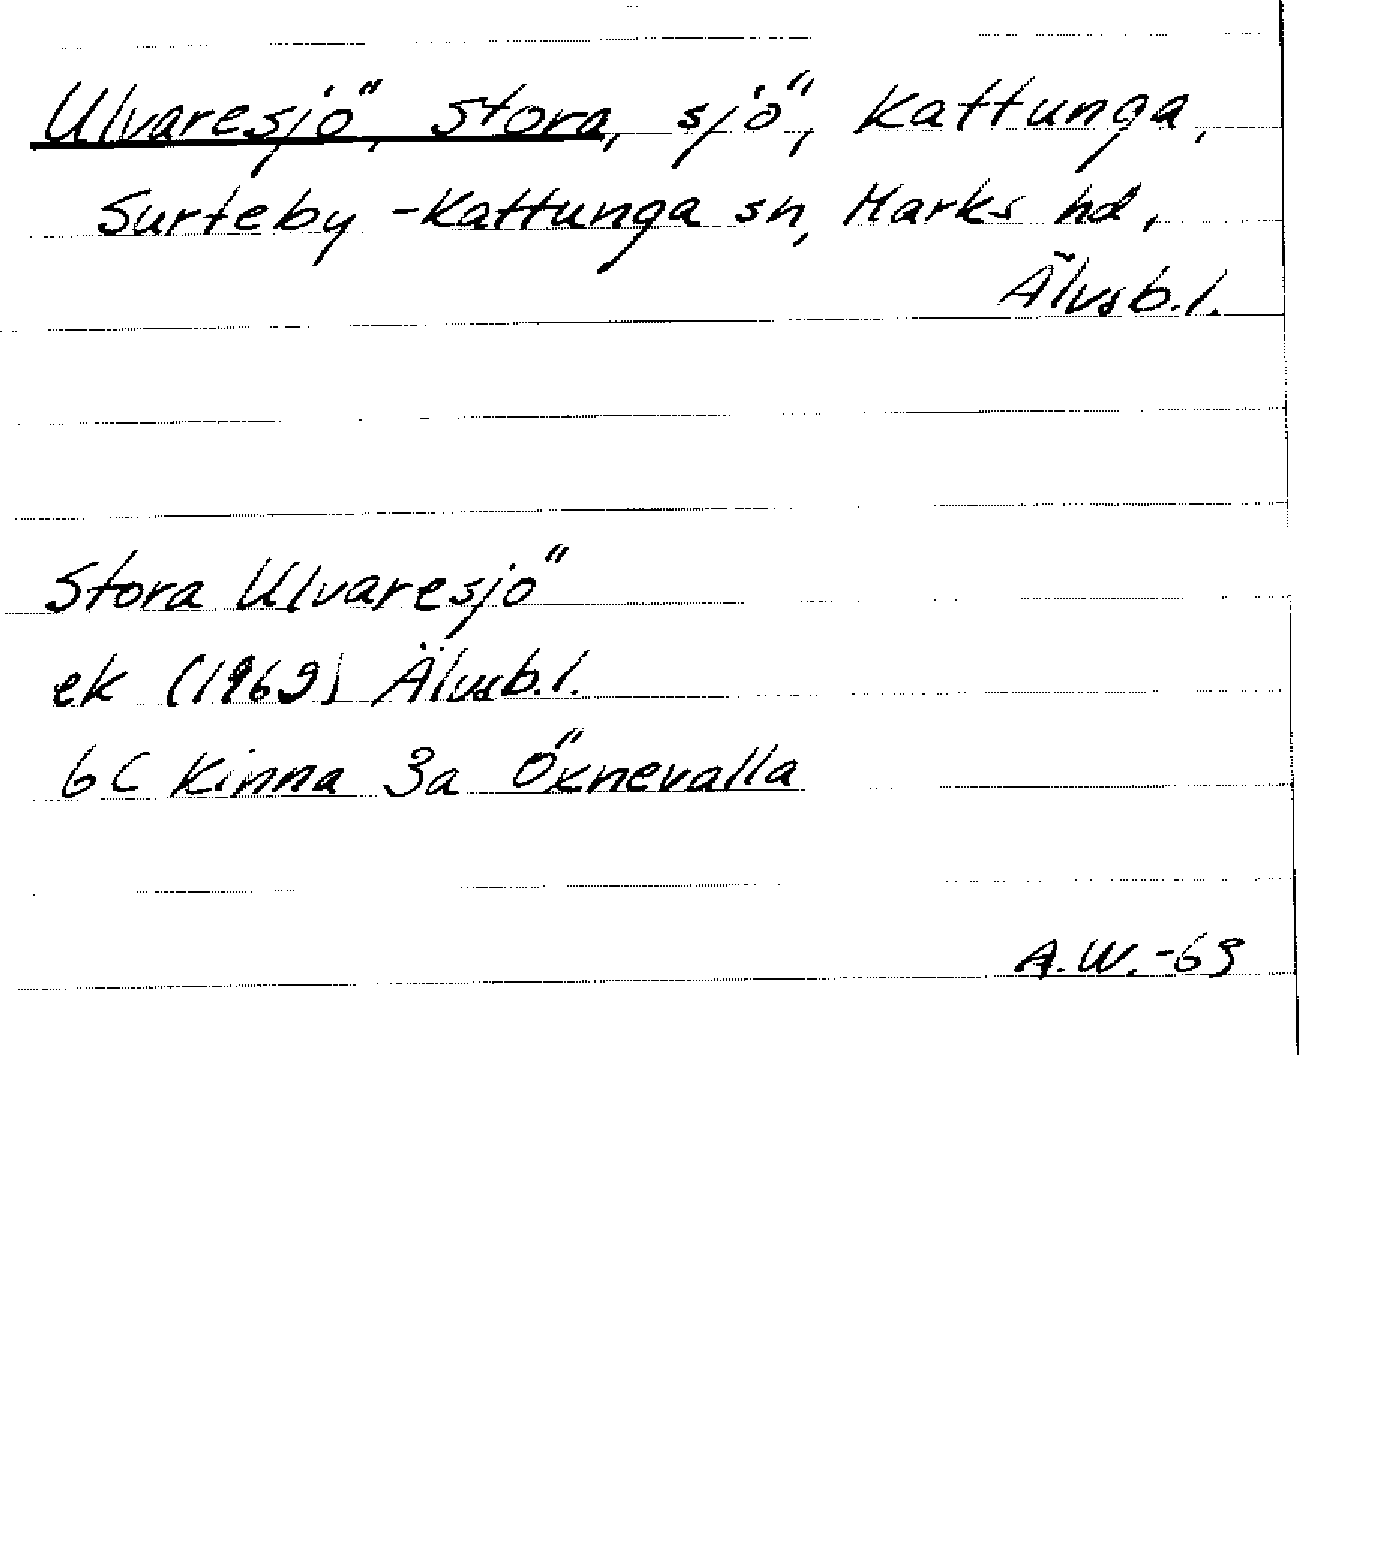 Ulvaresjö, Stora, sjö, Kattunga,
Surteby-Kattunga sn, Marks hd,
Älvsb.l.
Stora Ulvaresjö
ek (1969) Älvsb.l.
6C Kinna 3a Öxnevalla
A.W.-69